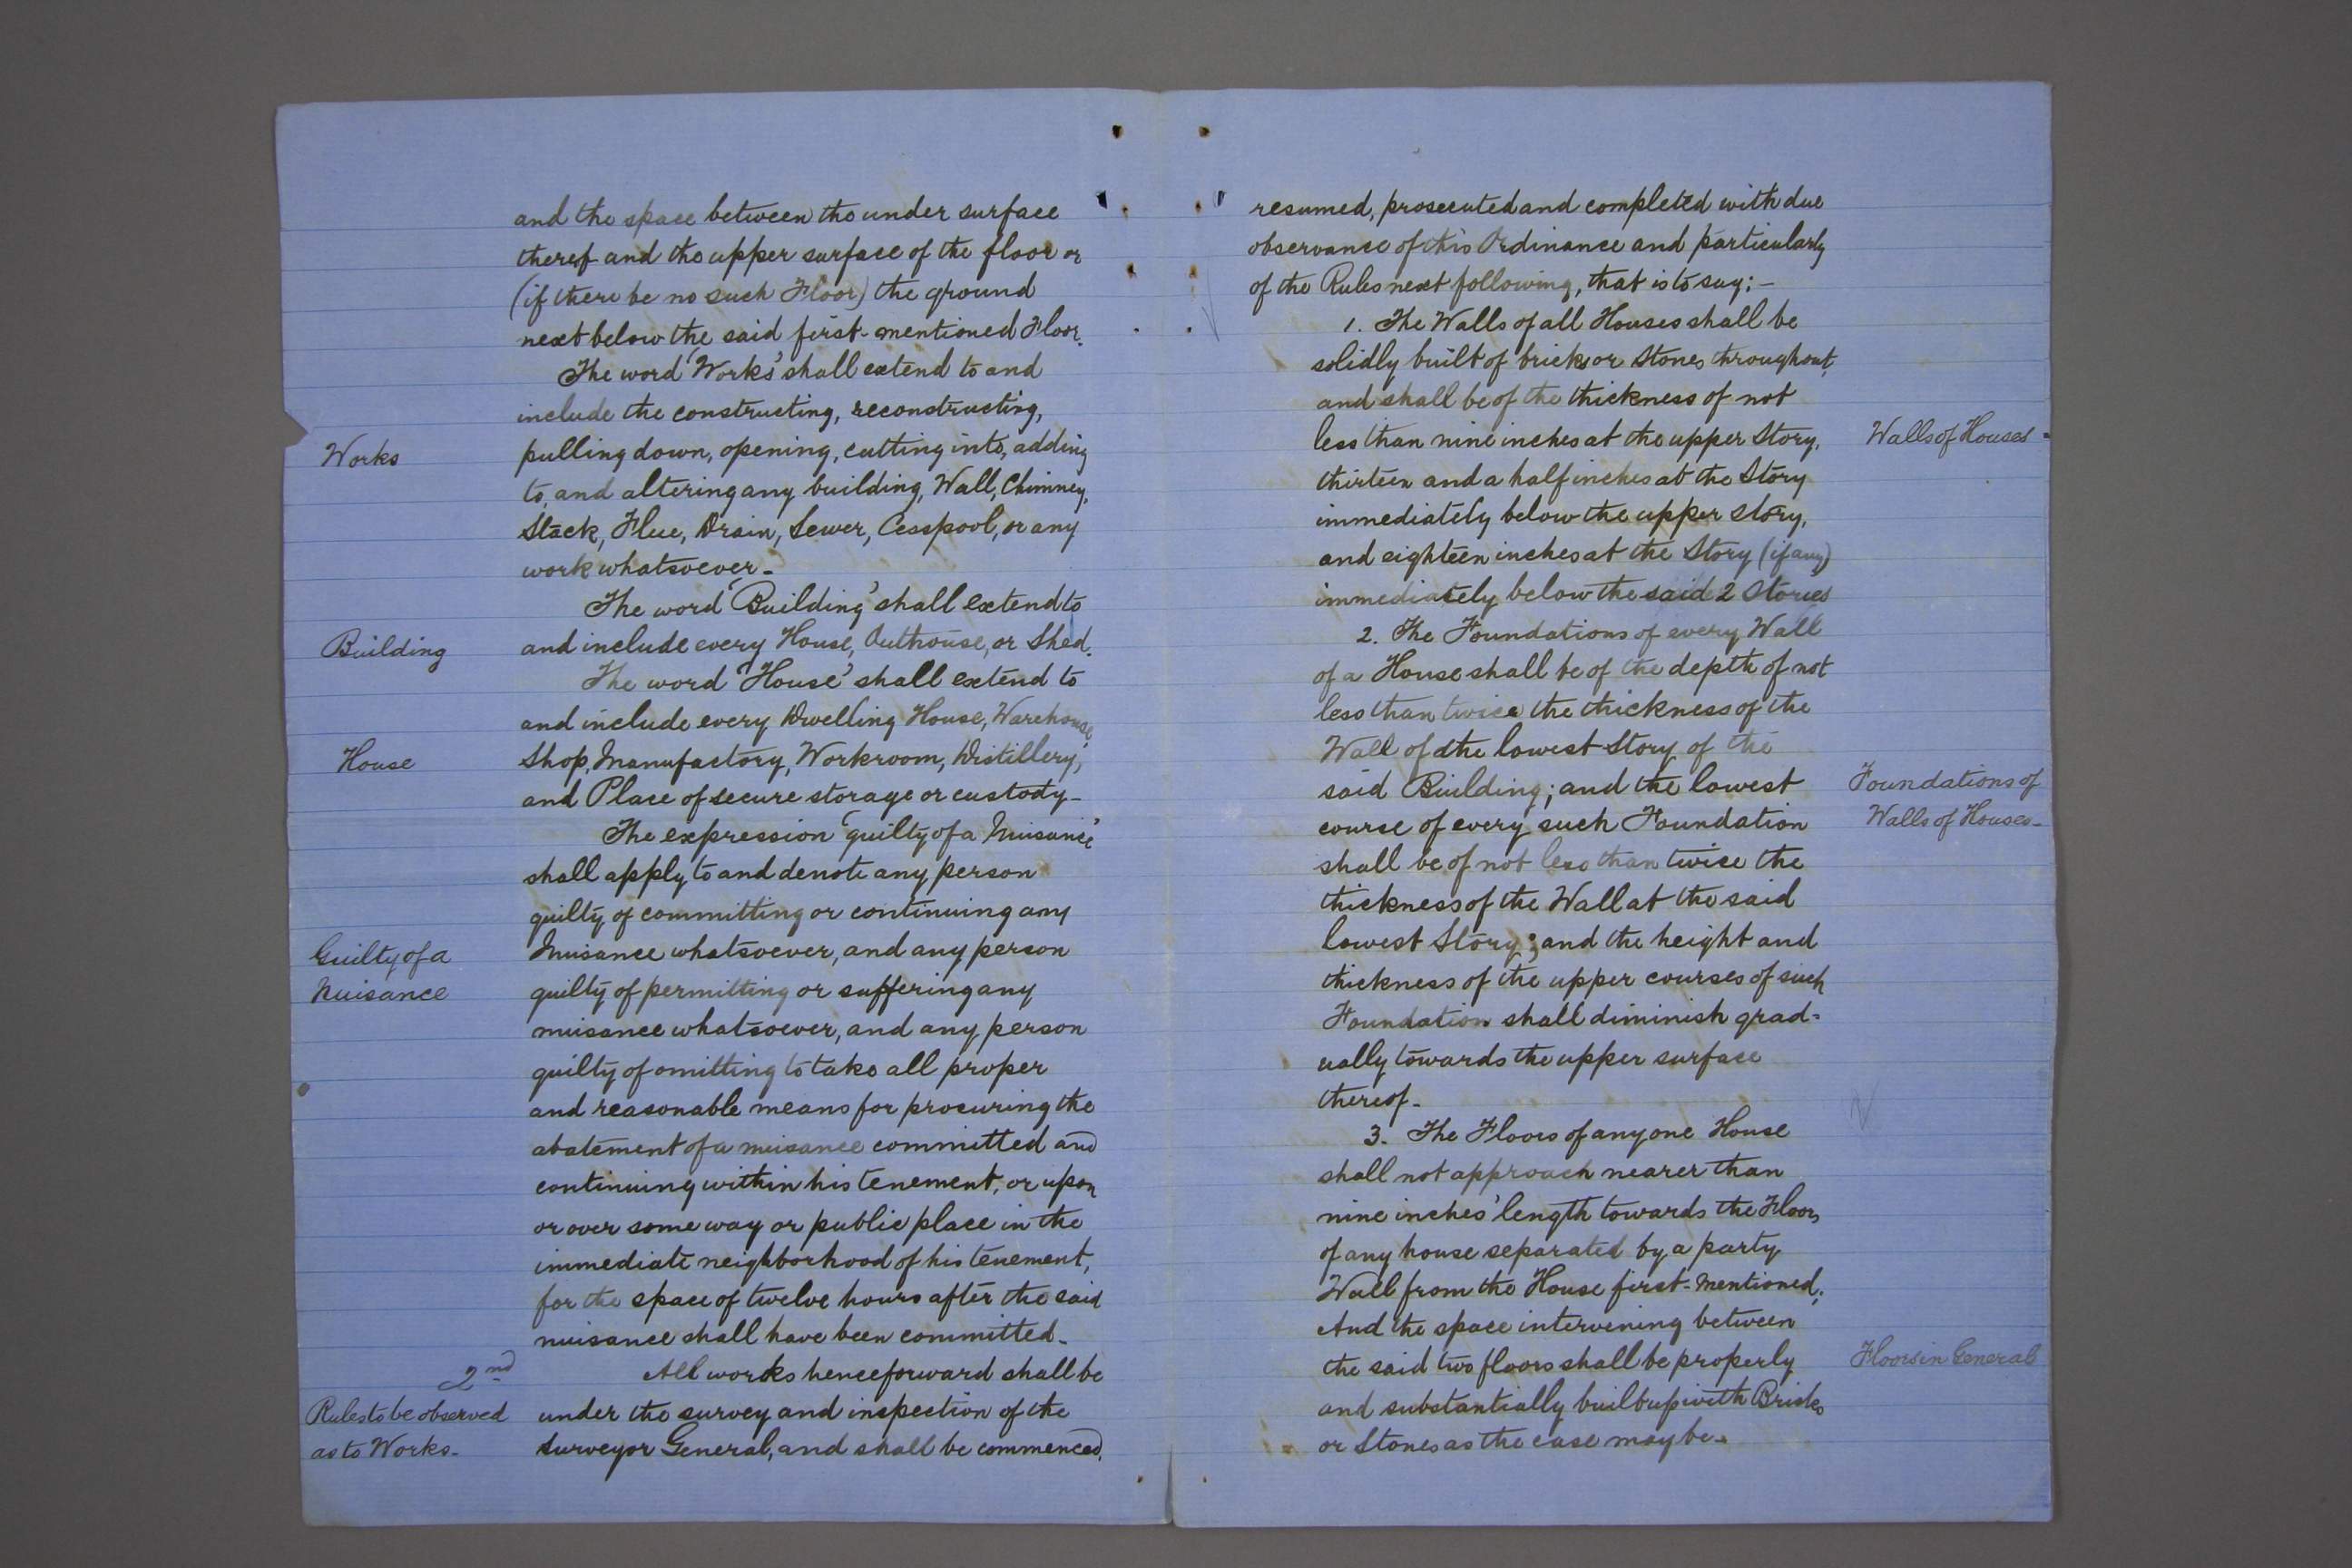 and the space between the under surface
thereof and the upper surface of the floor or
(if there be no such Floor) the ground
next below the said first-mentioned Floor.
The word 'Works' shall extend to and
include the constructing, reconstructing,
Works
pulling down, opening, cutting into, adding
to, and altering any building, Wall, Chimney,
Stack, Flue, Drain, Sewer, Cesspool, or any
work whatsoever-
The word 'Building' shall extend to
Building
and include every House, Outhouse, or Shed.
The word 'House' shall extend to
and include every Dwelling House, Warehouse,
House
Shop, Manufactory, Workroom, Distillery,
and Place of secure storage or custody-
The expression 'guilty of a Nuisance'
shall apply to and denote any person
guilty of committing or continuing any
Guilty of a
Nuisance whatsoever, and any person
Nuisance
guilty of permitting or suffering any
nuisance whatsoever, and any person
guilty of omitting to take all proper
and reasonable means for procuring the
abatement of a nuisance committed and
continuing within his tenement, or upon
or over some way or public place in the
immediate neighborhood of his tenement,
for the space of twelve hours after the said
nuisance shall have been committed-
2nd
All works henceforward shall be
Rules to be observed
under the survey and inspection of the
as to Works-
Surveyor General, and shall be commenced,
resumed, prosecuted and completed with due
observance of this Ordinance and particularly
of the Rules next following, that is to say:-
1. The Walls of all Houses shall be
solidly built of bricks or Stones throughout,
and shall be of the thickness of not
less than nine inches at the upper Story,
Walls of Houses-
thirteen and a half inches at the Story
immediately below the upper story,
and eighteen inches at the Story (if any)
immediately below the said 2 Stories
2. The Foundations of every Wall
of a House shall be of the depth of not
less than twice the thickness of the
Wall of the lowest Story of the
said Building; and the lowest
Foundations of
course of every such Foundation
Walls of Houses-
shall be of not less than twice the
thickness of the Wall at the said
lowest Story; and the height and
thickness of the upper courses of such
Foundation shall diminish grad=
ually towards the upper surface
thereof-
3. The Floors of any one House
shall not approach nearer than
nine inches' length towards the Floors
of any house separated by a party
Wall from the House first-mentioned;
And the space intervening between
the said two floors shall be properly
Floors in General
and substantially built up with Bricks
or Stones as the case may be-